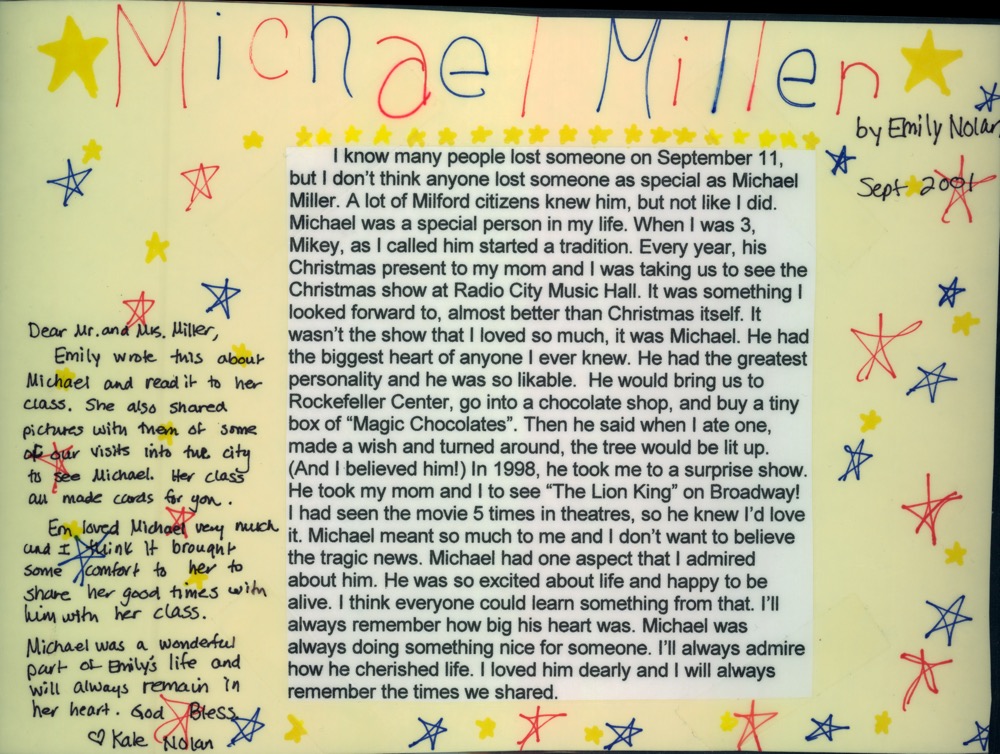 Michael Miller
by Emily Nolan
Sept 2001
I know many people lost someone on September 11,
but I don't think anyone lost someone as special as Michael
Miller. A lot of Milford citizens knew him, but not like I did.
Michael was a special person in my life. When I was 3,
Mikey, as I called him started a tradition. Every year, his
Christmas present to my mom and I was taking us to see the
Christmas show at Radio City Music Hall. It was something I
looked forward to, almost better than Christmas itself. It
wasn't the show that I loved so much, it was Michael. He had
the biggest heart of anyone I ever knew. He had the greatest
personality and he was so likable.  He would bring us to
Rockefeller Center, go into a chocolate shop, and buy a tiny
box of “Magic Chocolates”. Then he said when I ate one,
made a wish and turned around, the tree would be lit up.
(And I believed him!) In 1998, he took me to a surprise show.
He took my mom and I to see “The Lion King” on Broadway!
I had seen the movie 5 times in theatres, so he knew I'd love
it. Michael meant so much to me and I don't want to believe
the tragic news. Michael had one aspect that I admired
about him. He was so excited about life and happy to be
alive. I think everyone could learn something from that. I'll
always remember how big his heart was. Michael was
always doing something nice for someone. I'll always admire
how he cherished life. I loved him dearly and I will always
remember the times we shared.
Dear Mr. and Mrs. Miller,
Emily wrote this about
Michael and read it to her
class. She also shared
pictures with them of some
of our visits into the city
to see Michael. Her class
all made cards for you.
Em loved Michael very much
and I think it brought
some comfort to her to
share her good times with
him with her class.
Michael was a wonderful
part of Emily's life and
will always remain in
her heart. God Bless
♡ Kate Nolan